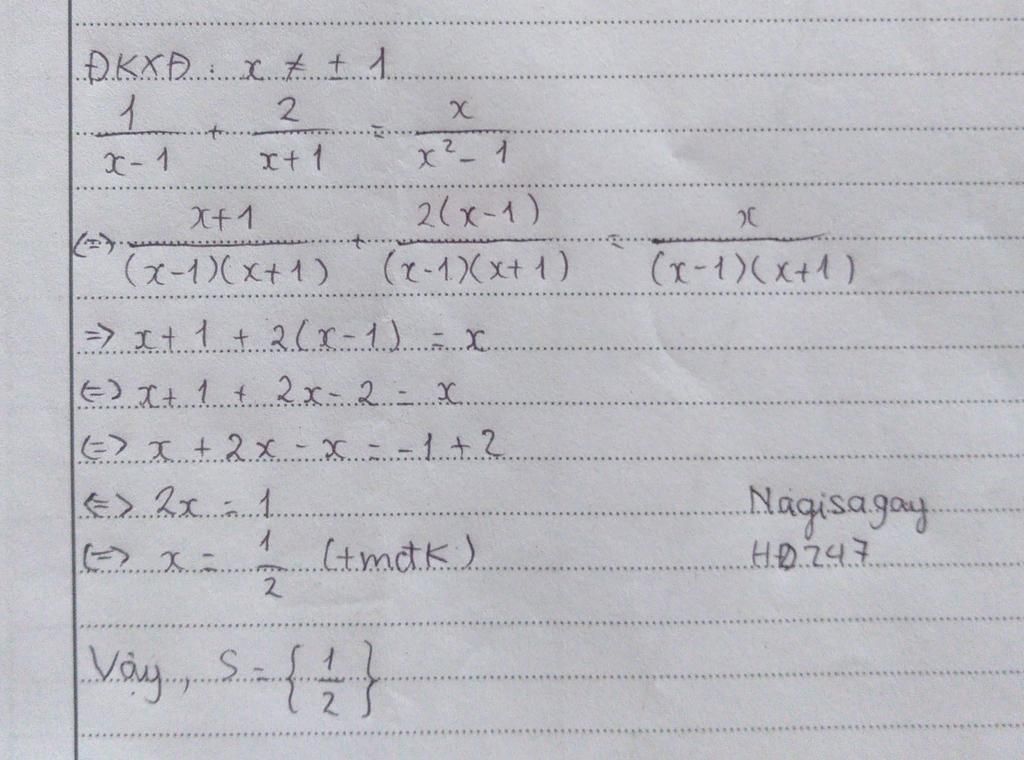 ĐKXĐ: x ≠ ± 1
1/(x-1) + 2/(x+1) = x/(x²-1)
(=) (x+1)/((x-1)(x+1)) + 2(x-1)/((x-1)(x+1)) = x/((x-1)(x+1))
=> x+1 + 2(x-1) = x
(=) x+1 + 2x-2 = x
(=> x + 2x - x = -1+2
<=> 2x = 1
Nagisagay
(=> x = 1/2 (tmđk)
HĐ247
Vậy, S = {1/2}